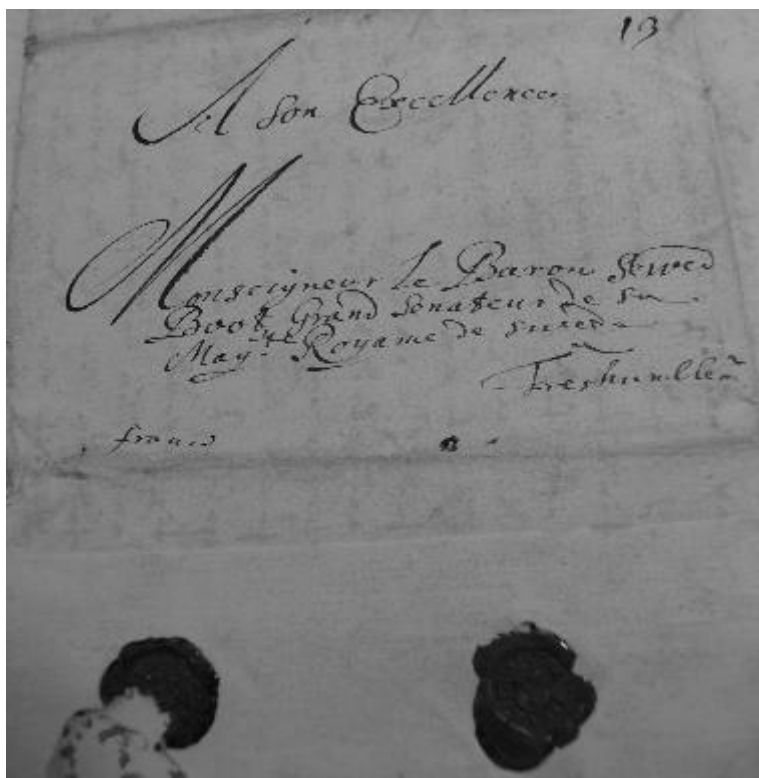 13
A son Excellence
Monseigneur Le Baron Swed
Boot Grand Senateur de sa
May.te Royame de Suede
Treshumblem
franco